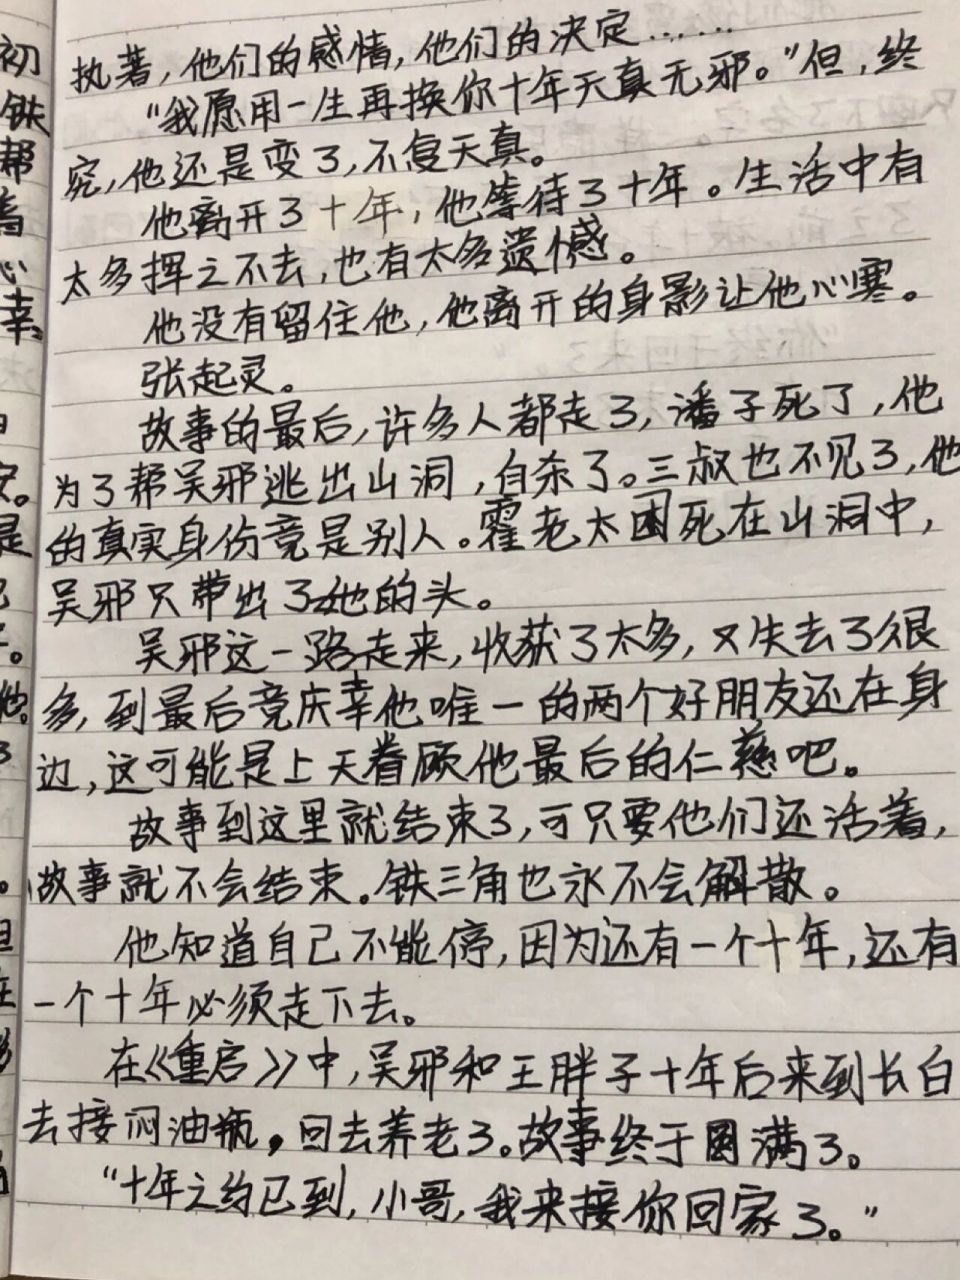 执著，他们的感情，他们的决定……
“我愿用一生再换你十年天真无邪。”但，终
究，他还是变了，不复天真。
他离开了十年，他等待了十年。生活中有
太多挥之不去，也有太多遗憾。
他没有留住他，他离开的身影让他心寒。
张起灵。
故事的最后，许多人都走了，潘子死了，他
为了帮吴邪逃出山洞，自杀了。三叔也不见了，他
的真实身份竟是别人。霍老太困死在山洞中，
吴邪只带出了她的头。
吴邪这一路走来，收获了太多，又失去了很
多，到最后竟庆幸他唯一的两个好朋友还在身
边，这可能是上天眷顾他最后的仁慈吧。
故事到这里就结束了，可只要他们还活着，
故事就不会结束。铁三角也永不会解散。
他知道自己不能停，因为还有一个十年，还有
一个十年必须走下去。
在《重启》中，吴邪和王胖子十年后来到长白
去接闷油瓶，回去养老了。故事终于圆满了。
“十年之约已到，小哥，我来接你回家了。”